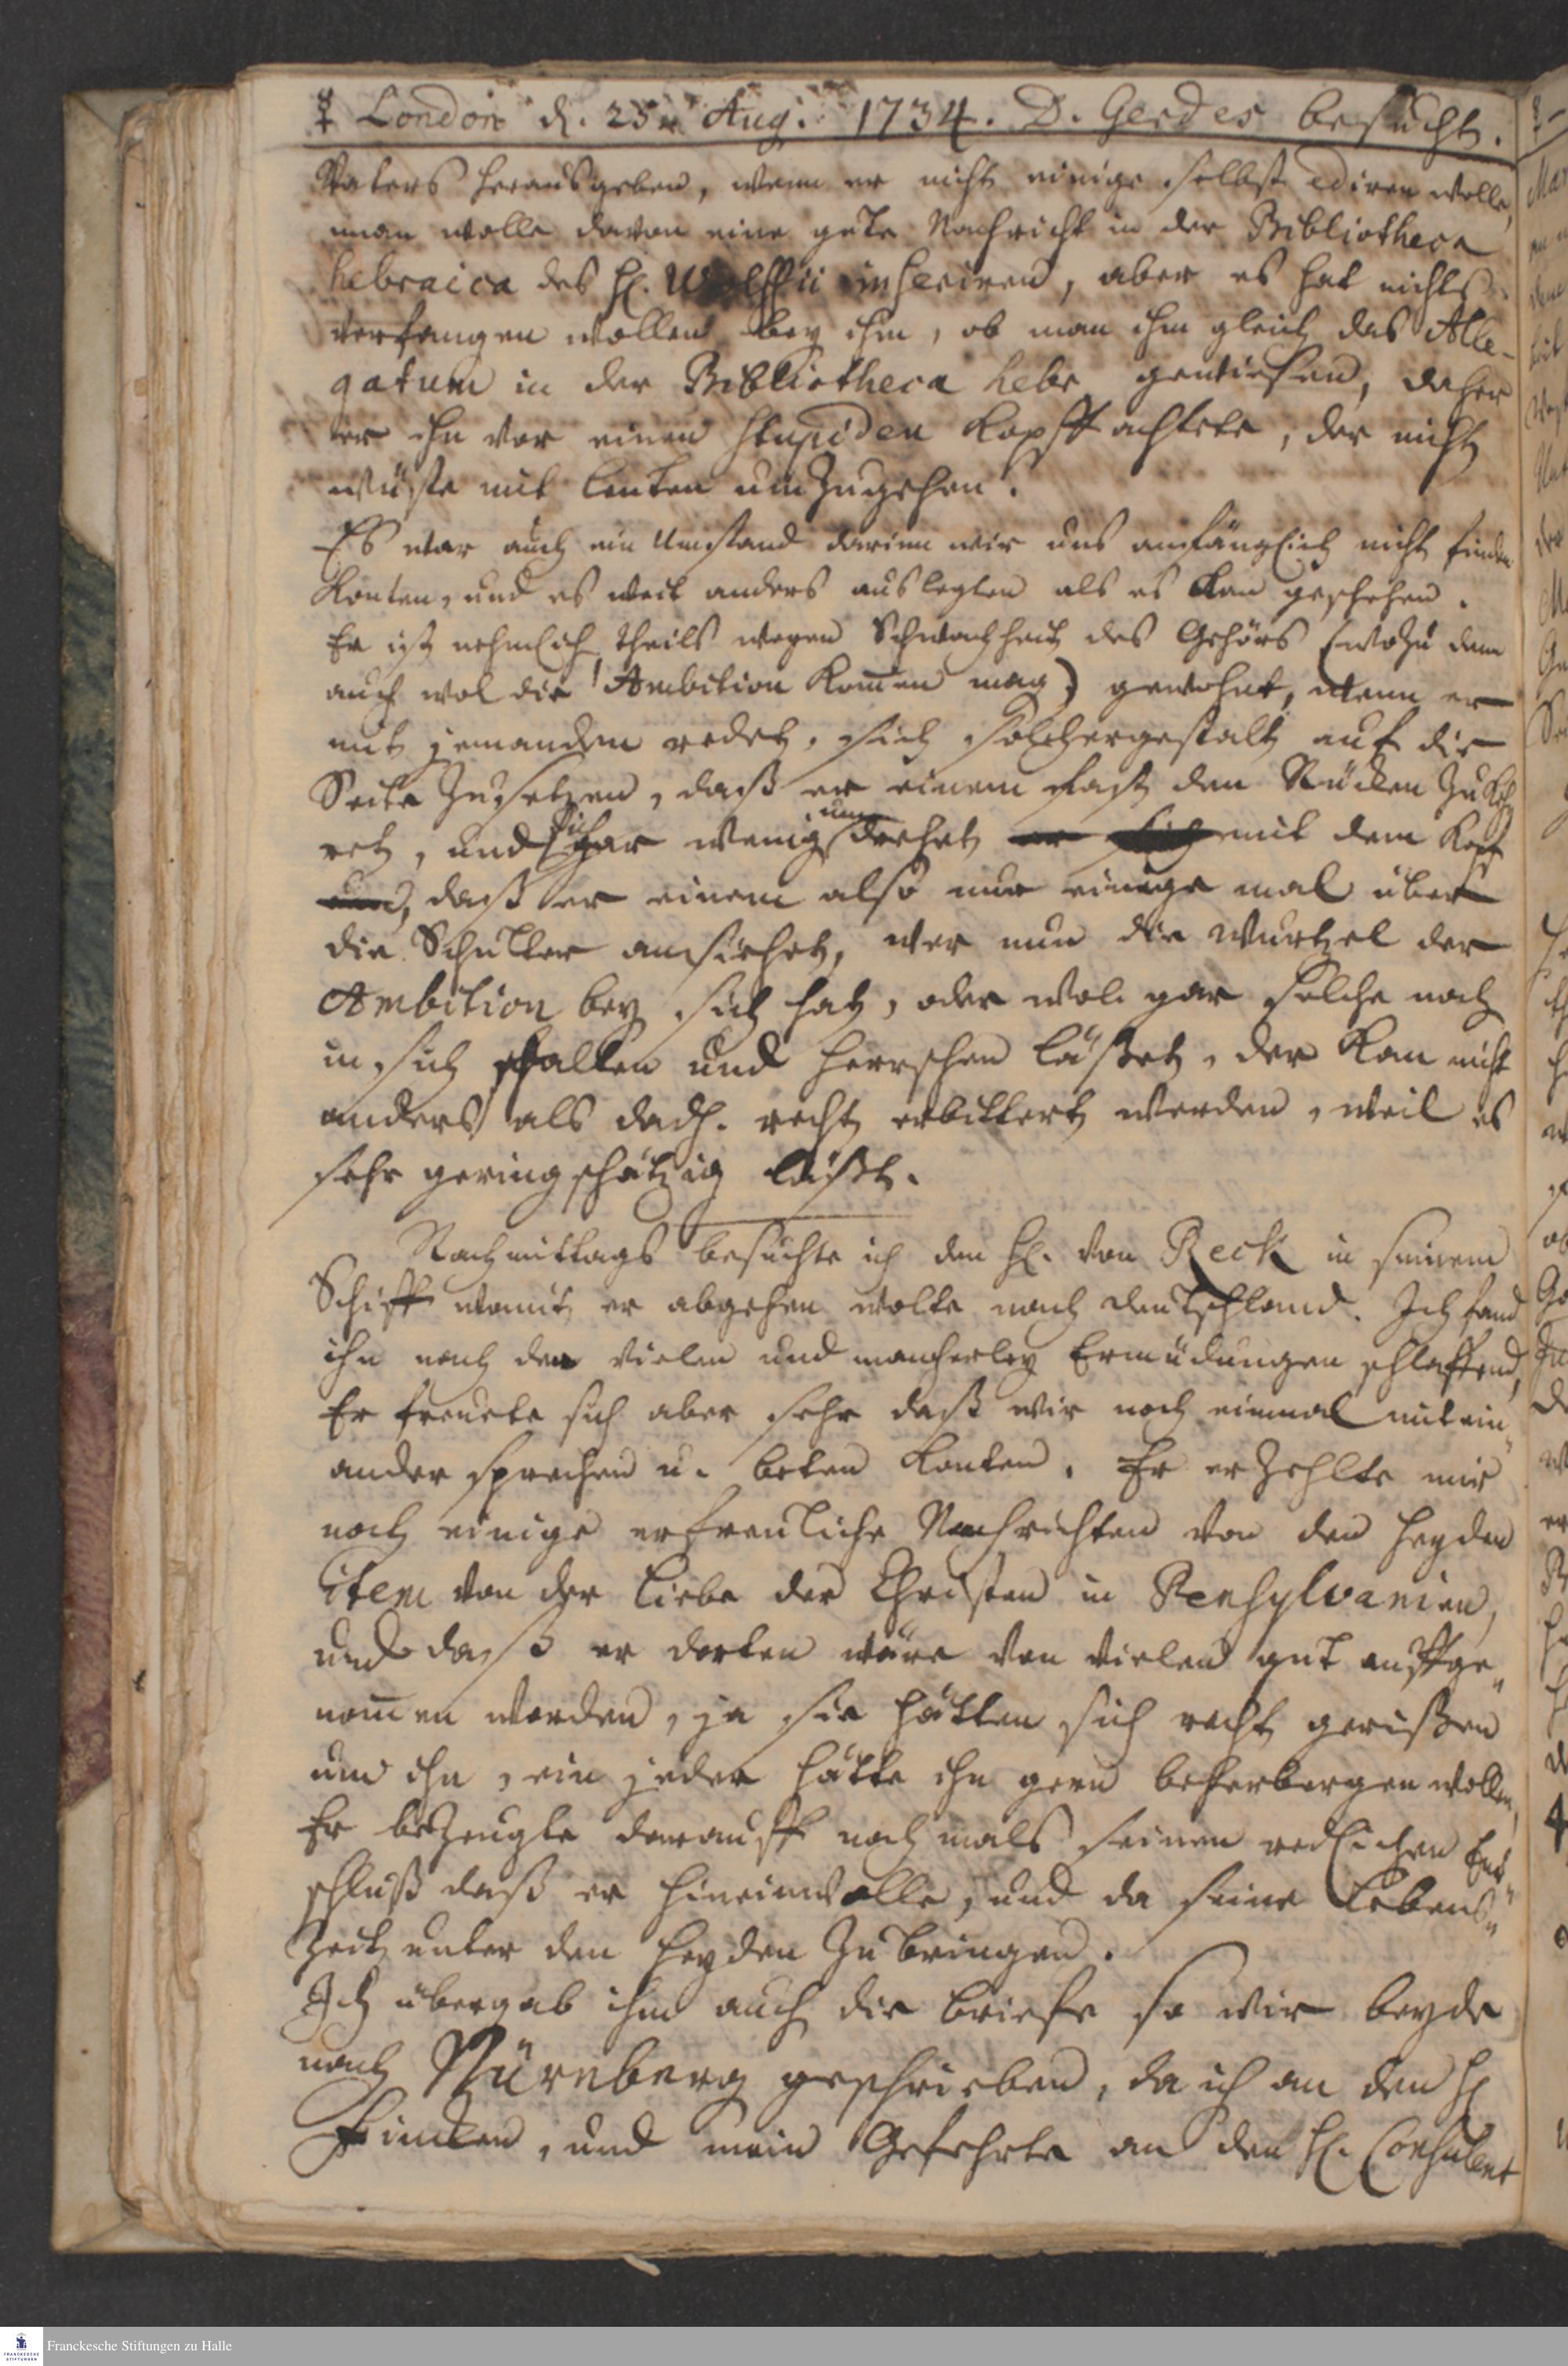 ☿ London d. 25n Aug. 1734. D. Gerdes besucht.
Vaters herausgeben, wenn er nicht einige selbst ediren wolle,
man wolle davon eine gute Nachricht in der Bibliotheca
hebraica des H. Wolffii inseriren, aber es hat nichts
verfangen wollen bey ihm, ob man ihm gleich das Alle-
gatum in der Bibliotheca hebr gewiesen, daher
er ihn vor einen stupiden Kopff achtete, der nicht
wüste mit leuten umzugehen.
Es war auch ein Umstand darinn wir uns anfänglich nicht finden
konten, und es weit anders auslegten als es kan geschehen.
Er ist nehmlich theils wegen Schwachheit des Gehörs (wozu dem
auch wol die Ambition kom̄en mag) gewohnt, wenn er
mit jemanden redet, sich solchergestalt auf die
Seite zu setzen, daß er einem fast den Rücken zukeh
ret, und sich gar wenig um drehet er sich mit dem Kopf
und, daß er einem also nur einige mal über
die Schulter ansiehet, wer nun die Wurtzel der
Ambition bey sich hat, oder wol gar solche noch
in sich schalten und herrschen läßet, der kan nicht
anders als dadh. recht erbittert werden, weil es
sehr geringschätzig läßt.
Nachmittags besuchte ich den H. von Reck in seinem
Schiff womit er abgehen wolte nach deutschland. Ich fand
ihn nach den vielen und mancherley Ermüdungen schlaffend,
Er freuete sich aber sehr daß wir noch einmal mit ein„
ander sprechen u. beten konten. Er erzehlte mir
noch einige erfreuliche Nachrichten von den Heyden
item von der liebe der Christen in Pensylvanien,
und daß er dorten wäre von vielen gut auffge„
nom̄en worden, ja sie hätten sich recht gerißen
um ihn, ein jeder hätte ihn gern beherbergen wollen,
Er bezeugte darauff nochmals seinen redlichen Ent„
schluß daß er hinein wolle, und da seine Lebens„
Zeit unter den Heyden zubringen.
Ich übergab ihm auch die briefe so wir beyde
nach Nürnberg geschrieben, da ich an den H
und mein Gefehrte an den H. Consulent
Franckesche Stiftungen zu Halle